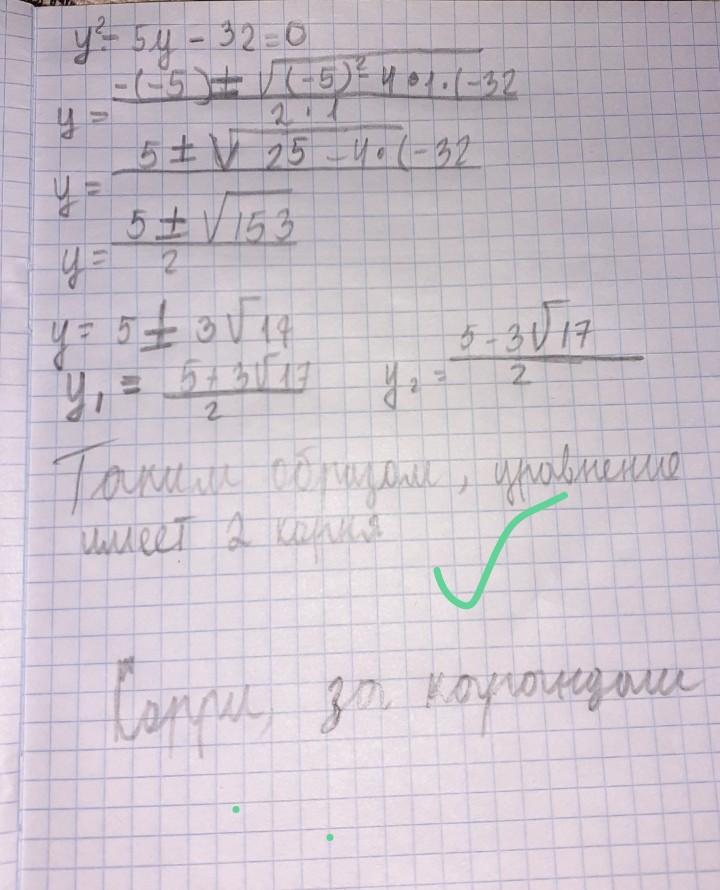 y² - 5y - 32 = 0
y = -(-5) ± √(-5)² - 4 • 1 • (-32
2 • 1
y = 5 ± √25 - 4 • (-32
y = 5 ± √153
2
y = 5 ± 3√17
y₁ = 5 + 3√17
2
y₂ = 5 - 3√17
2
Таким образом, уравнение
имеет 2 корня
Сорри, за карандаш